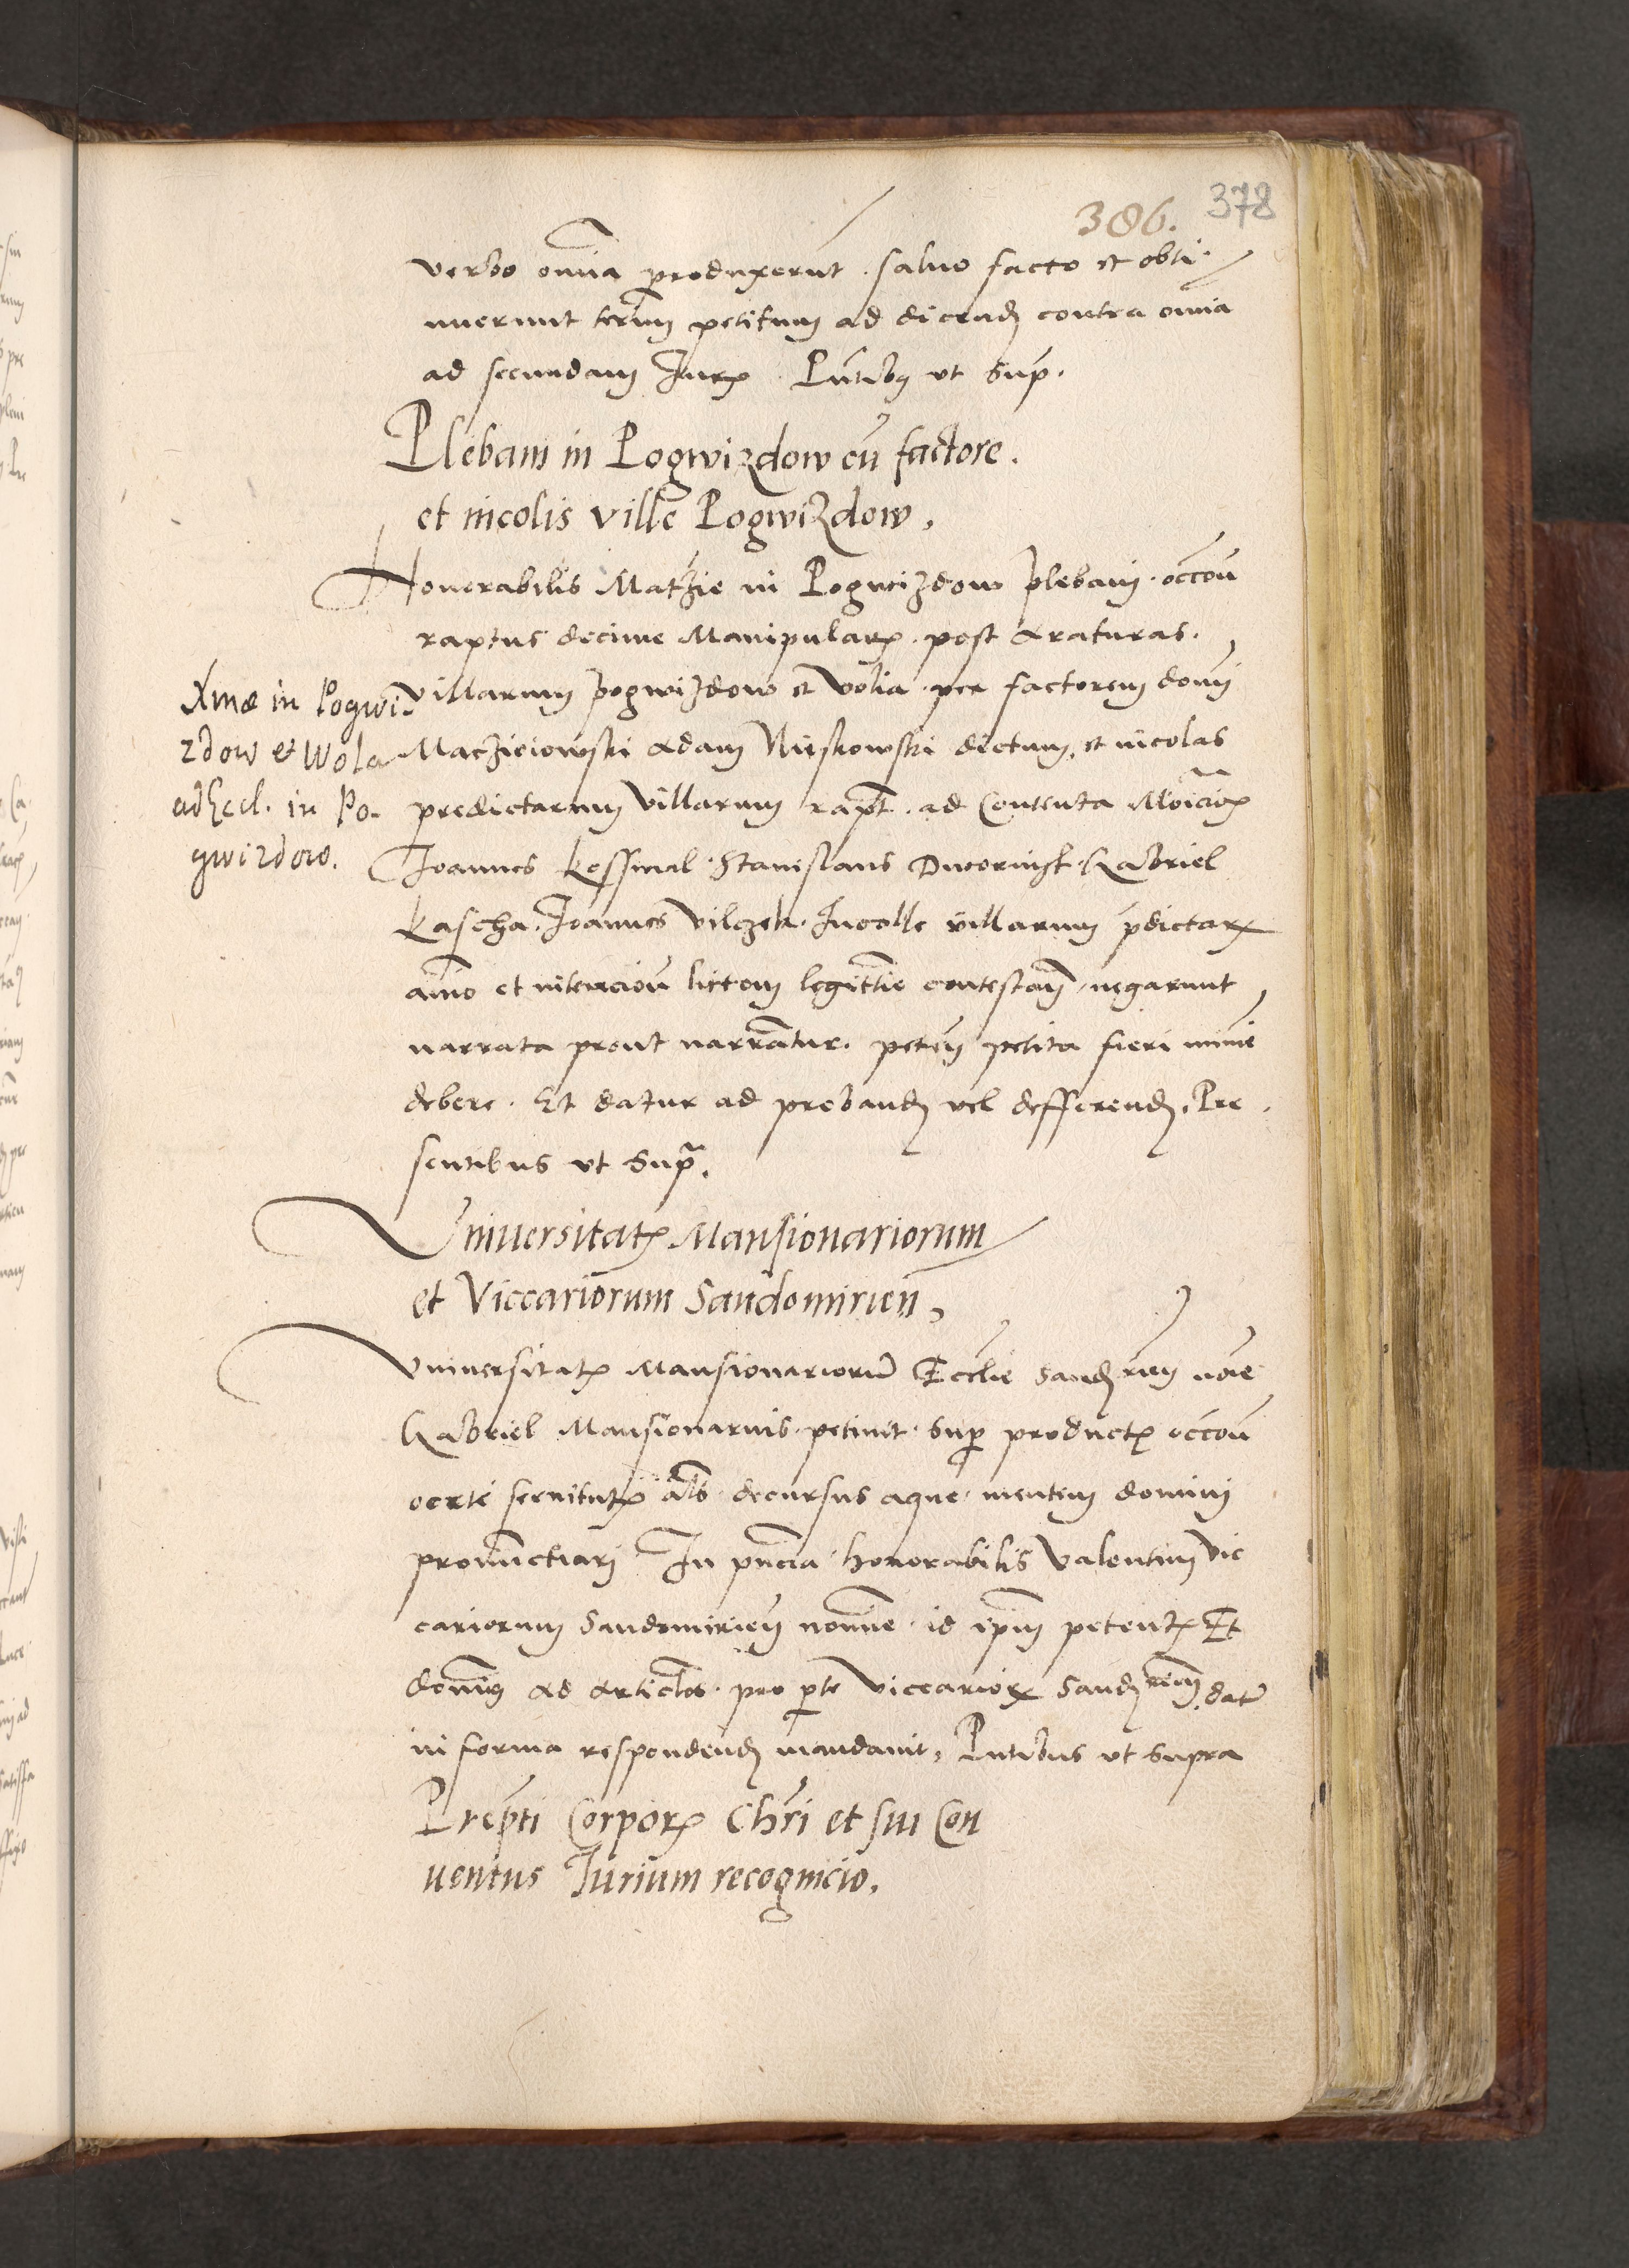 386. 378
verbo omnia produxerunt. salvo facto et obti-
nuerunt termin petitum ad dicend contra omnia
ad secundam Juris. Pntibus ut Supra.
Plebani in Pogwizdow cum factore.
et incolis ville Pogwizdow.
Honorabilis Mathie in Pogwizdow plebani. occon
raptus decime Manipularis. post araturas.
villarum pogwizdow et Volia. per factorem domi
Maczieiowski Adam dictum. et incolas
predictarum villarum rapt. ad Contenta
Joannes Kossmal. Stanislaus Dwornik. Gabriel
Kascha. Joannes Vilczek. Incolle villarum pdictarum
animo et intencion littem legittime contestan. negarunt
narrata prout narrantur. peten petita fieri minime
debere. Et datur ad proband vel defferend. Pre-
sentibus ut Supra.
Xmae in Pogwi-
zdow et Wola
ad Eccl. in Po-
gwizdow.
Vniversitatis Mansionariorum
et Viccariorum Sandomirien.
Vniversitatis Mansionariorum Ecclie Sand rien noie
Gabriel Mansionarius. petivit. Super productis occon
certe servitutis als decursus aque. mentem domini
pronunctiari. In pncia. honorabilis Valentini vic
cariorum Sandomirien nomine. id ipsum petentis Et
dominus ad articlos. pro parte Viccariorum Sand rien dat
in forma respondend mandavit. Pntibus ut supra
Prepti Corporis Chri et sui Con
ventus Jurium recognicio.